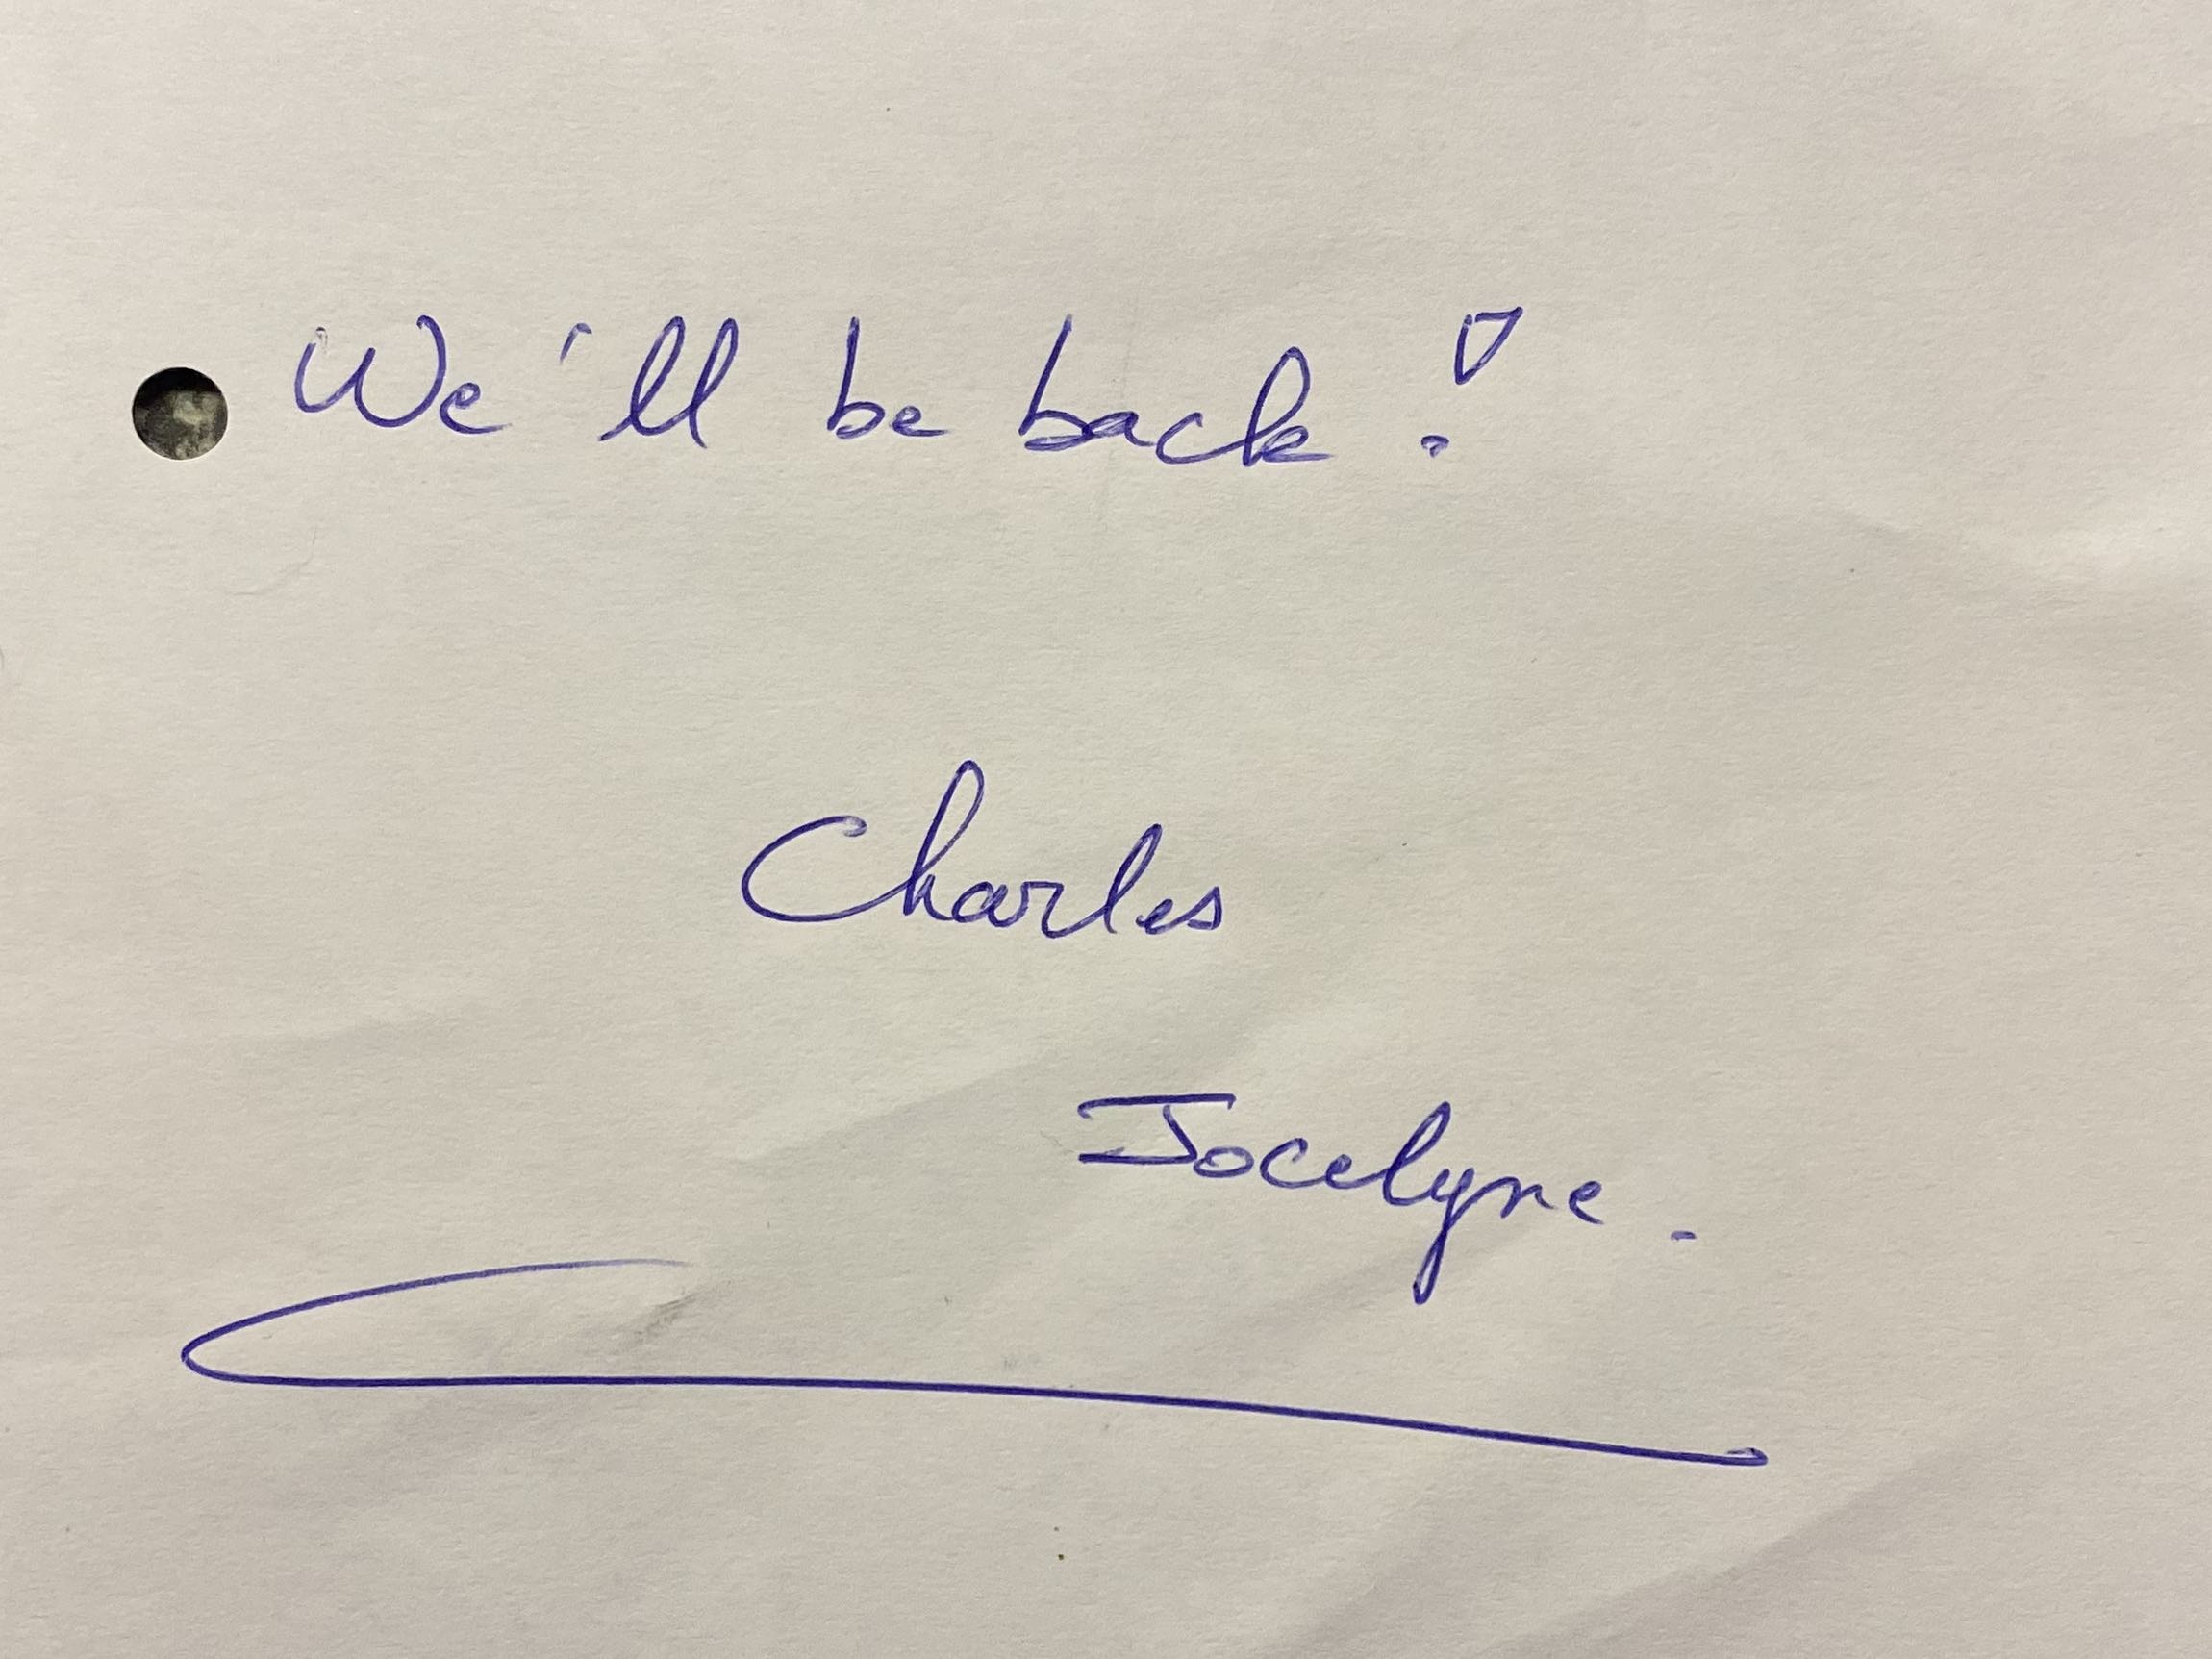 We'll be back!
Charles
Jocelyne.